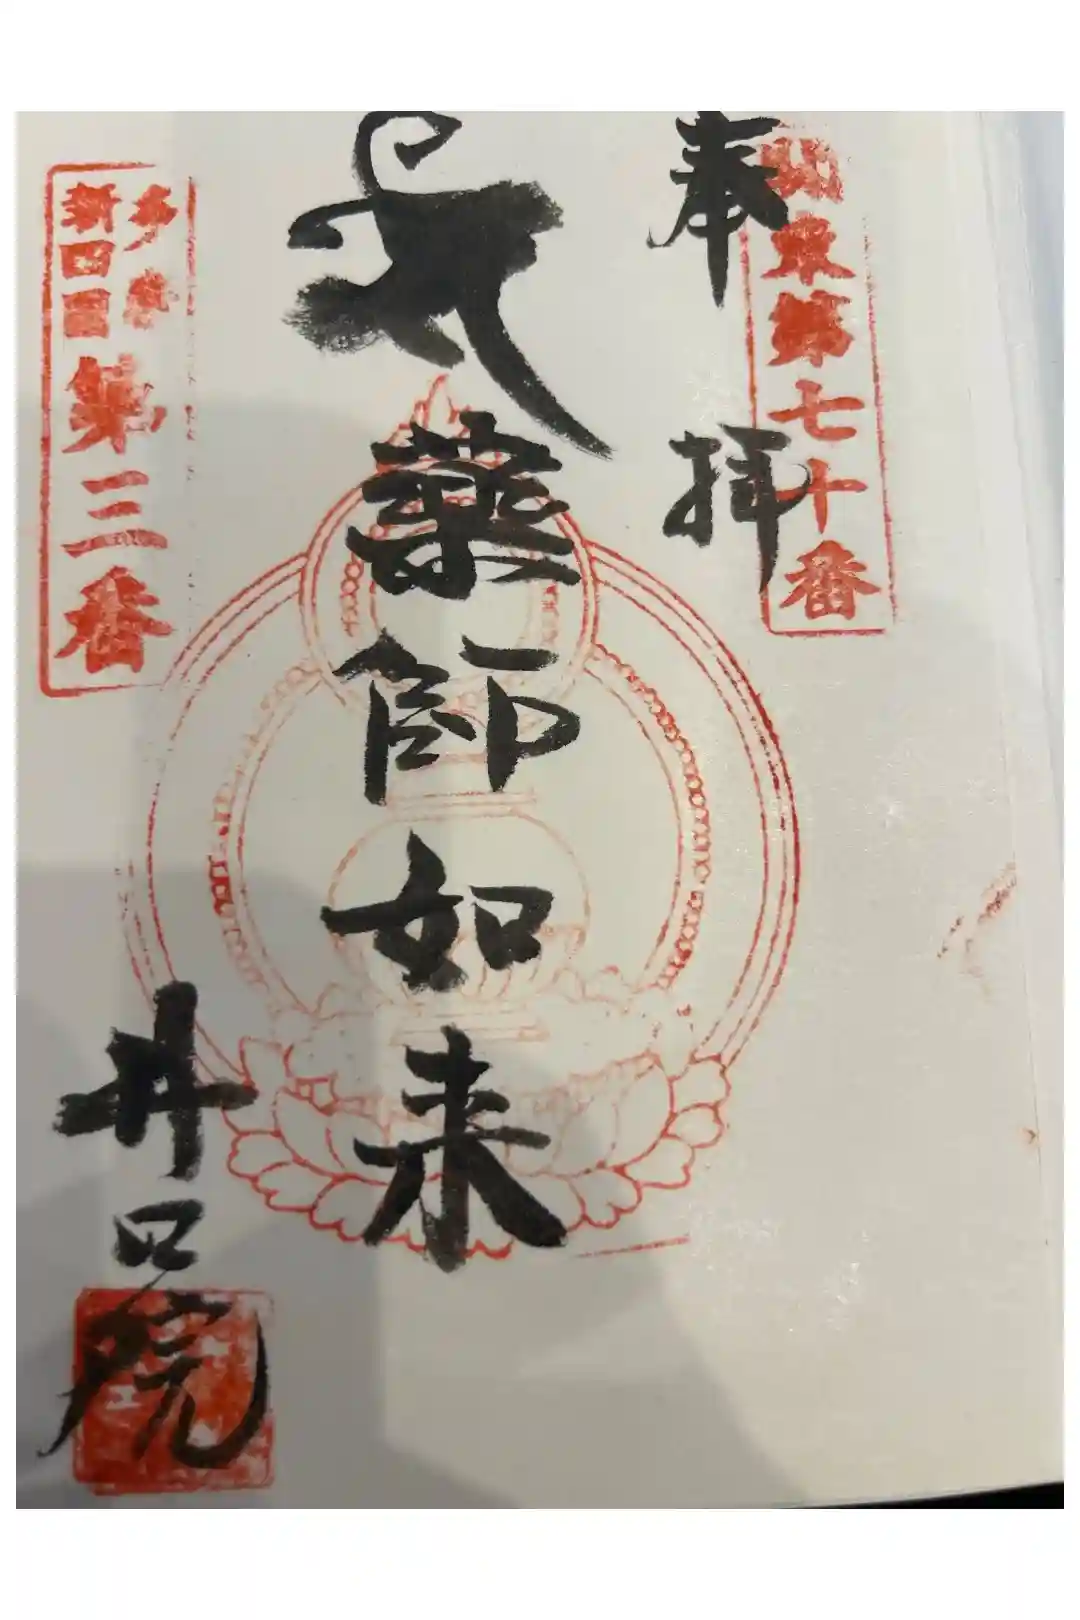 奉拝
関東第七十番
薬師如来
多摩
新四国
第三番
井口院